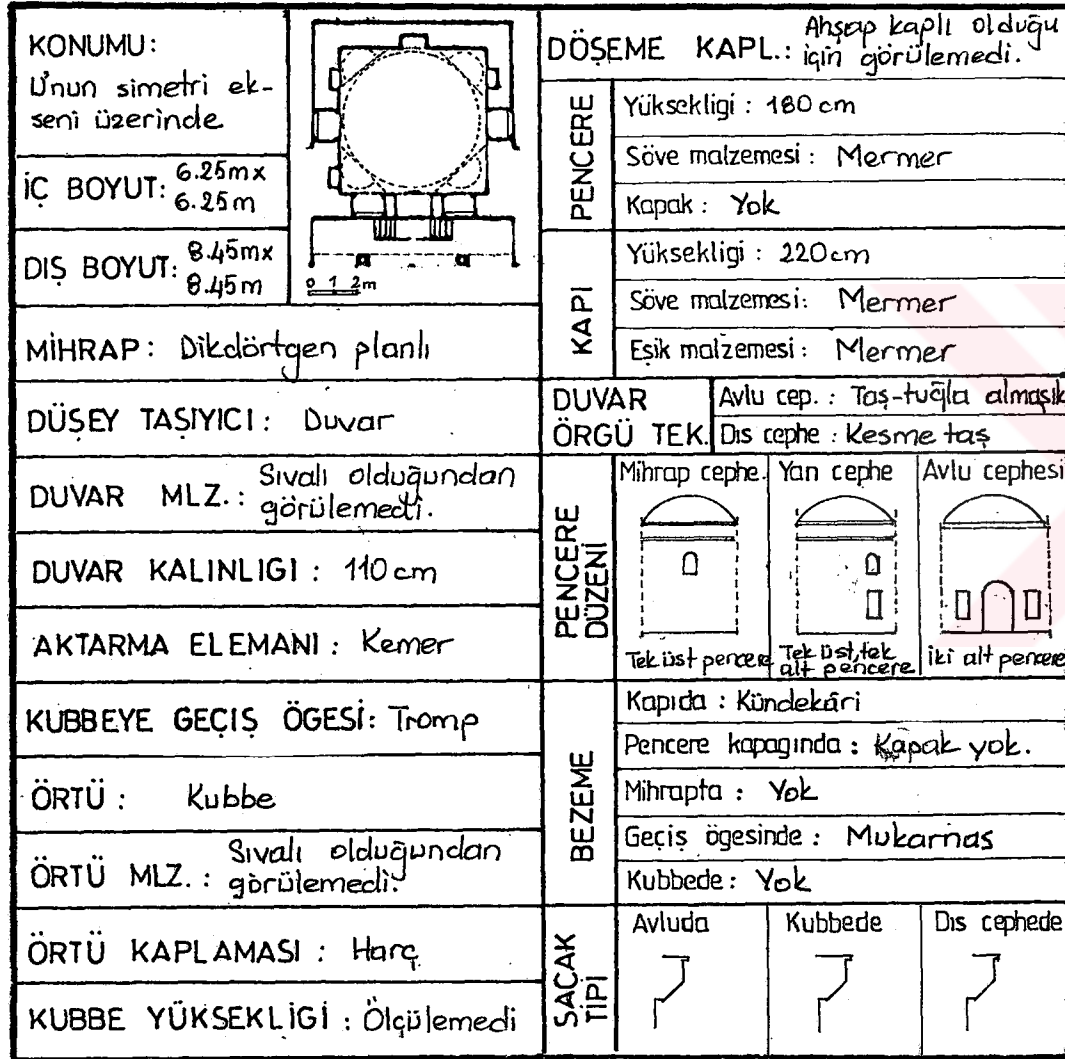 KONUMU:
U'nun simetri ek-
seni üzerinde
İÇ BOYUT: 6.25m x
6.25m
DIŞ BOYUT: 8.45m x
8.45m
0 1 2m
MİHRAP: Dikdörtgen planlı
DÜŞEY TAŞIYICI: Duvar
DUVAR MLZ.: Sıvalı olduğundan
görülemedi.
DUVAR KALINLIGI : 110 cm
AKTARMA ELEMANI : Kemer
KUBBEYE GEÇİŞ ÖGESİ: Tromp
ÖRTÜ : Kubbe
ÖRTÜ MLZ. : Sıvalı olduğundan
görülemedi.
ÖRTÜ KAPLAMASI : Harç
KUBBE YÜKSEKLİGİ : Ölçülemedi
DÖŞEME KAPL.: Ahşap kaplı olduğu
için görülemedi.
PENCERE
Yüksekligi : 180 cm
Söve malzemesi : Mermer
Kapak : Yok
KAPI
Yüksekligi : 220 cm
Söve malzemesi: Mermer
Eşik malzemesi : Mermer
DUVAR
ÖRGÜ TEK.
Avlu cep. : Taş-tuğla almaşık
Dıs cephe : Kesme taş
PENCERE
DÜZENİ
Mihrap cephe. Yan cephe Avlu cephesi
Tek üst pencere
Tek üst, tek
alt pencere
iki alt pencere
BEZEME
Kapıda : Kündekâri
Pencere kapagında : Kapak yok.
Mihrapta : Yok
Geçiş ögesinde : Mukarnas
Kubbede : Yok
SAÇAK
TİPİ
Avluda Kubbede Dıs cephede